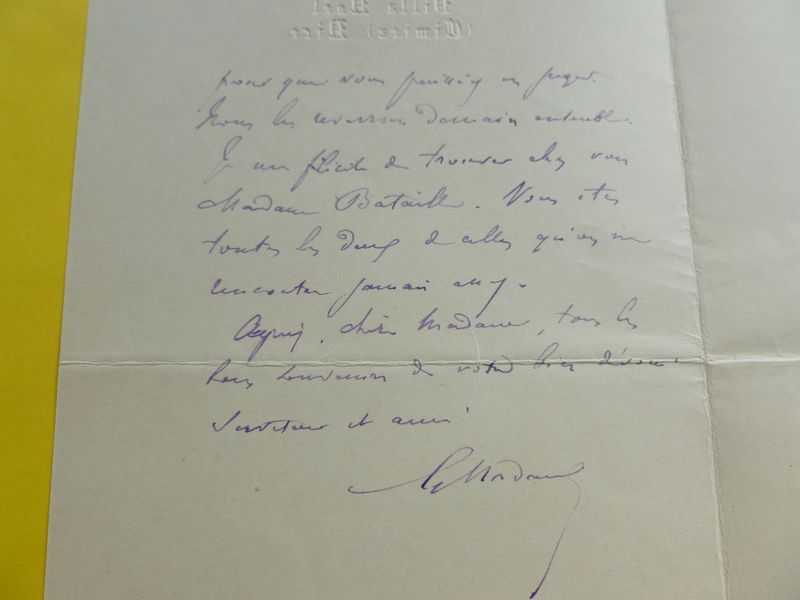 Villa Noël
(Cimiez) Nice
pour que vous puissiez en juger.
Nous les reverrons Demain ensemble.
Je me félicite de trouver chez vous
Madame Bataille. Vous etes
toutes les deux de celles qu'on ne
rencontre jamais assez.
Agréez, chère Madame, tous les
bons souvenirs de votre bien dévoué
serviteur et ami